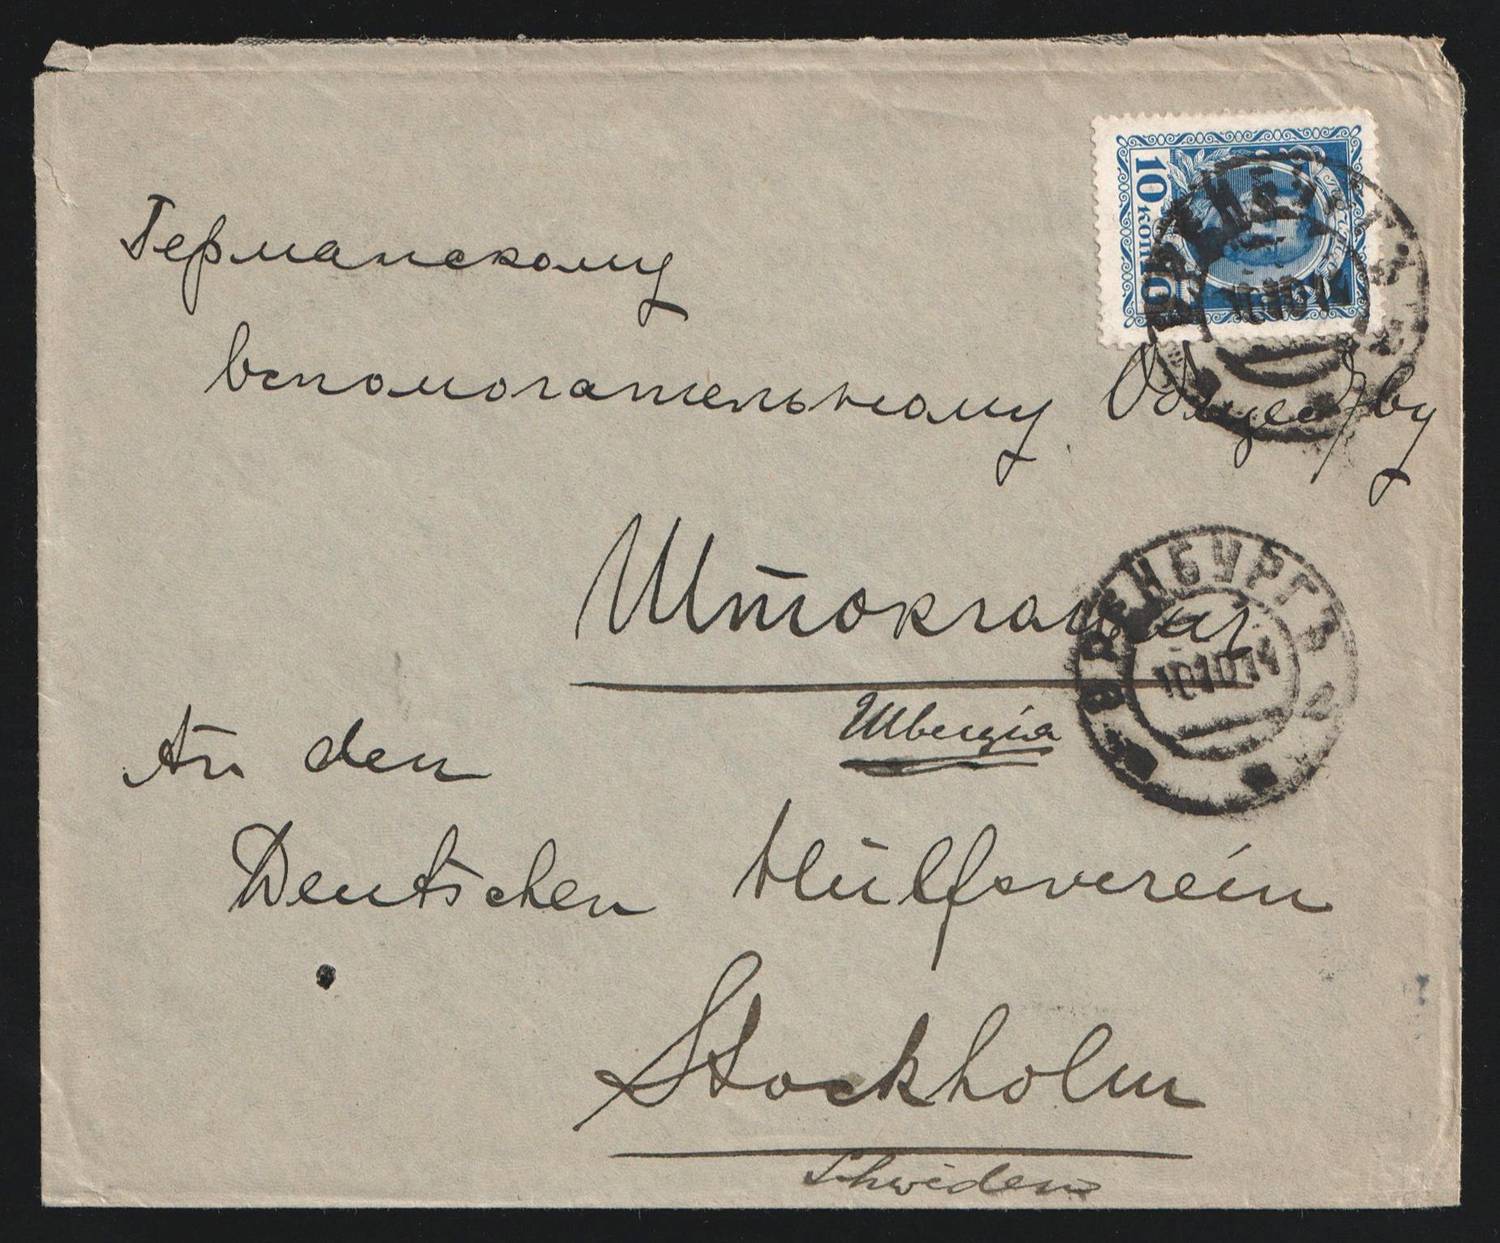 10 КОП 10
ОРЕНБУРГЪ
10 10 14
Германскому
вспомогательному Обществу
Штокгольмъ
Швецiя
ОРЕНБУРГЪ
10 10 14
An den
Deutschen Hülfsverein
Stockholm
Schweden